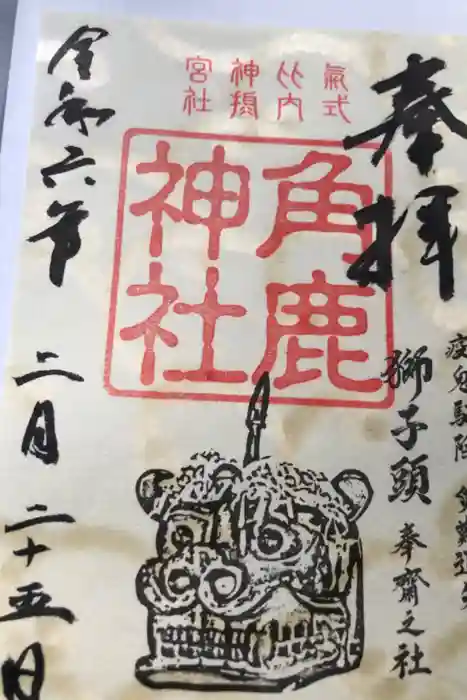 奉拝
疫鬼駆
獅子頭 奉齋之社
氣式
比内
神
宮社
角鹿
神社
令和六年
二月二十五日